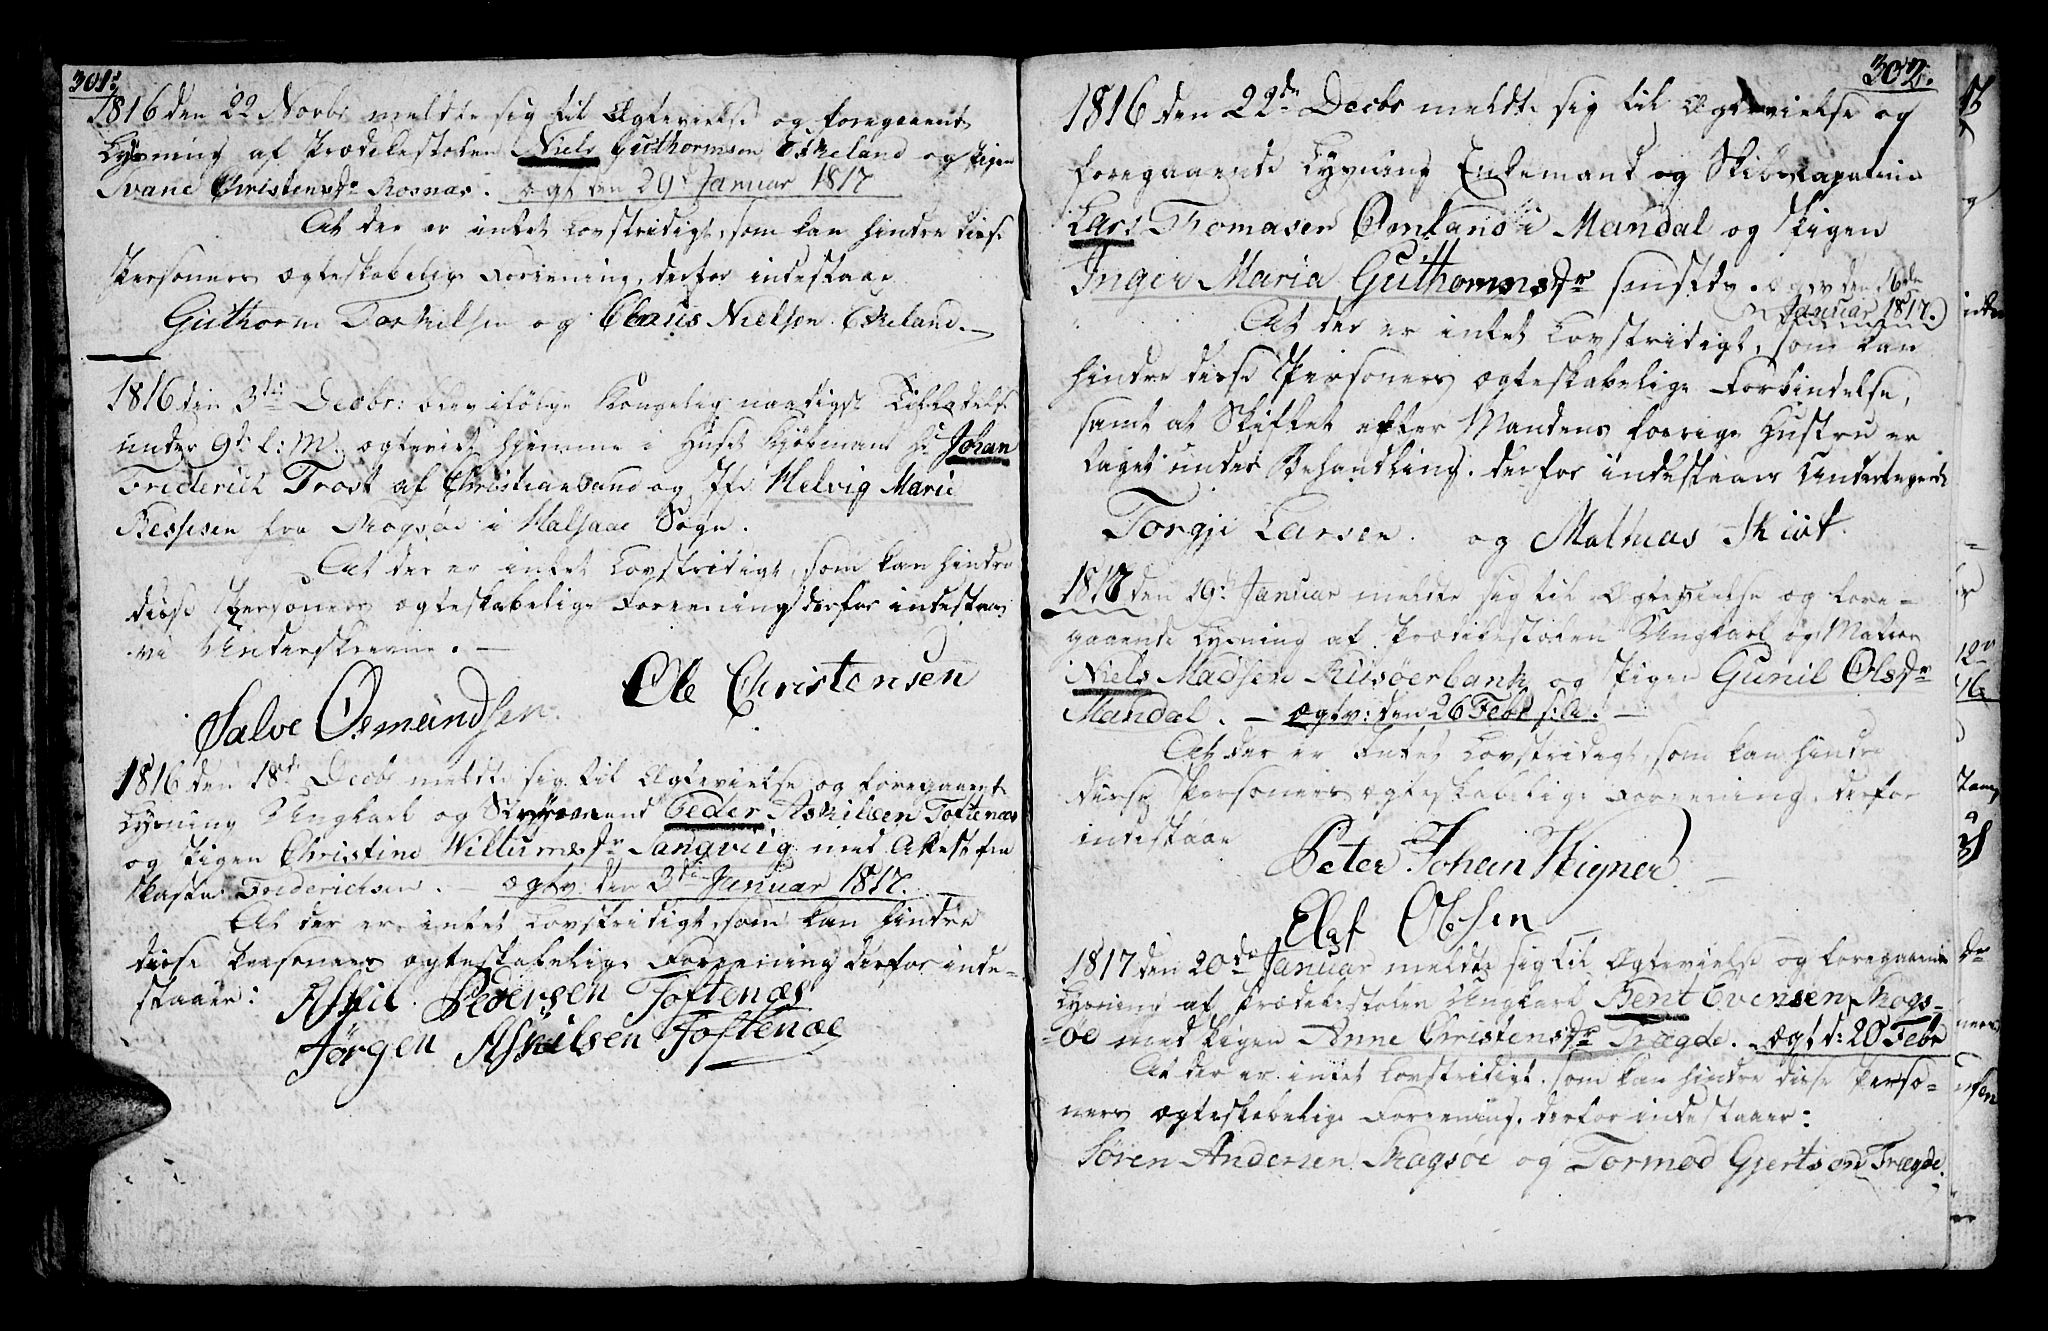 301.
1816 den 22 Novbr meldte sig til Ægtevielse og foregaaende
Lysning af Prædikestolen Niels Guthormsen Eskeland og Pigen
Svane Christensdr Rosnæs. ægt den 29d Januar 1817
At der er intet Lovstridigt, som kan hindre disse
Personers ægteskabelige Foreening, derfor indestaar
Guthorm Torkilsen og Claus Nielsen Eskeland.
1816 den 3die Decbr: blev ifølge Kongelig naadigst Tilladelse
under 9de f: M. ægteviet hjemme i Huset Kjøbmand Hr Johan
Friderich Trost af Christiansand og Jfr Helvig Marie
Resssen fra Skogsøe i Halsaae Sogn.
At der er intet Lovstridigt, som kan hindre
disse Personers ægteskabelige Foreening derfor indestaar
vi Underskrevne. —
Ole Christensen
Salve Osmundsen.
1816 den 18de Decbr meldte sig til Ægtevielse og foregaaende
Lysning Ungkarl og Styrmand Peder Askilsen Toftenæs
og Pigen Christine Willumsdr Sangviig med Attest fra
Frederichsen. — ægtv: den 3die Januar 1817.
At der er intet Lovstridigt, som kan hindre
disse Personers ægteskabelige Foreening derfor inde-
staaer: Askil Pedersen Toftenæs
Jørgen Askilsen Toftenæs
302.
1816 den 22de Decbr meldte sig til Ægtevielse og
foregaaende Lysning Enkemand og Skibskapatin
Lars Thomasen Omland i Mandal og Pigen
Inger Maria Guthormsdr sammestds. ægtv den 16de
Januar 1817.
At der er intet Lovstridigt, som kan
hindre disse Personers ægteskabelige Forbindelse,
samt at Skiftet efter Mandens forrige Hustru er
taget under Behandling. derfor indestaaer Undertegnede
Torgje Larsen og Mathias
1817 den 19de Januar meldte sig til Ægtevielse og fore-
gaaende Lysning af Prædikestolen Ungkarl og Matros
Niels Madsen Risøerbank og Pigen Gunil Olsdr
Mandal. — ægtv: den 26 Febr s: A. —
At der er Intet Lovstridigt, som kan hindre
disse Personers ægteskabelige Foreening, derfor
indestaae Peter Johan Heigner
Elef Olsen
1817 den 20de Januar meldte sig til Ægtevielse og foregaaende
Lysning af Prædikestolen Ungkarl Bent Evensen Skogs-
øe med Pigen Anne Christensdr Trægde. ægt d: 20 Febr
At der er intet Lovstridigt, som kan hindre disse Perso-
ners ægteskabelige Foreening, derfor indestaaer:
Søren Andersen Skogsøe og Tormod Gjertsen Trægde.